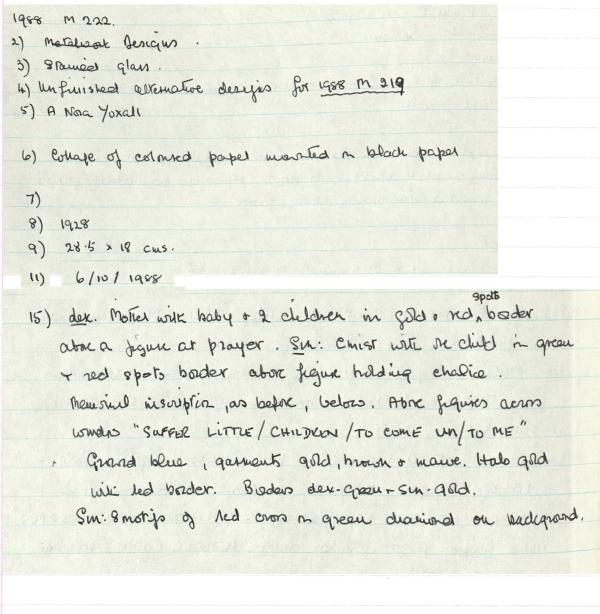 1988 M 222.
2) Metalwork Designs.
3) Stained glass.
4) Unfinished alternative designs for 1988 M 219
5) A Nora Yoxall
6) Collage of coloured paper mounted on black paper
7)
8) 1928
9) 28.5 x 18 cms.
11) 6/10/1988
spots
15) dex. Mother with baby + 2 children in gold + red ^ border
above a figure at prayer. Sin: Christ with one child in green
+ red spots border above figure holding chalice.
Memorial inscription, as before, below. Above figures across
window "SUFFER LITTLE/CHILDREN/TO COME UN/TO ME"
Ground blue, garments gold, brown + mauve. Halo gold
with red border. Borders dex-green + sin-gold.
Sin: 8 motifs of red cross on green diamond on background.